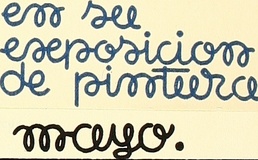 en su
exposicion
de pintura
mayo.